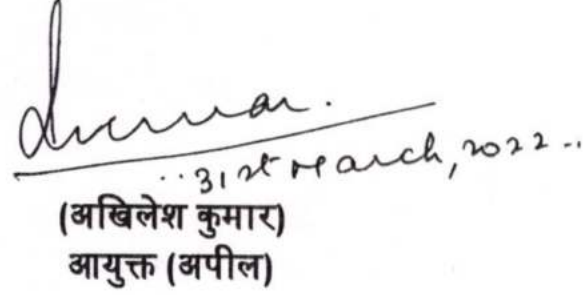 31st March, 2022..
(अखिलेश कुमार)
आयुक्त (अपील)